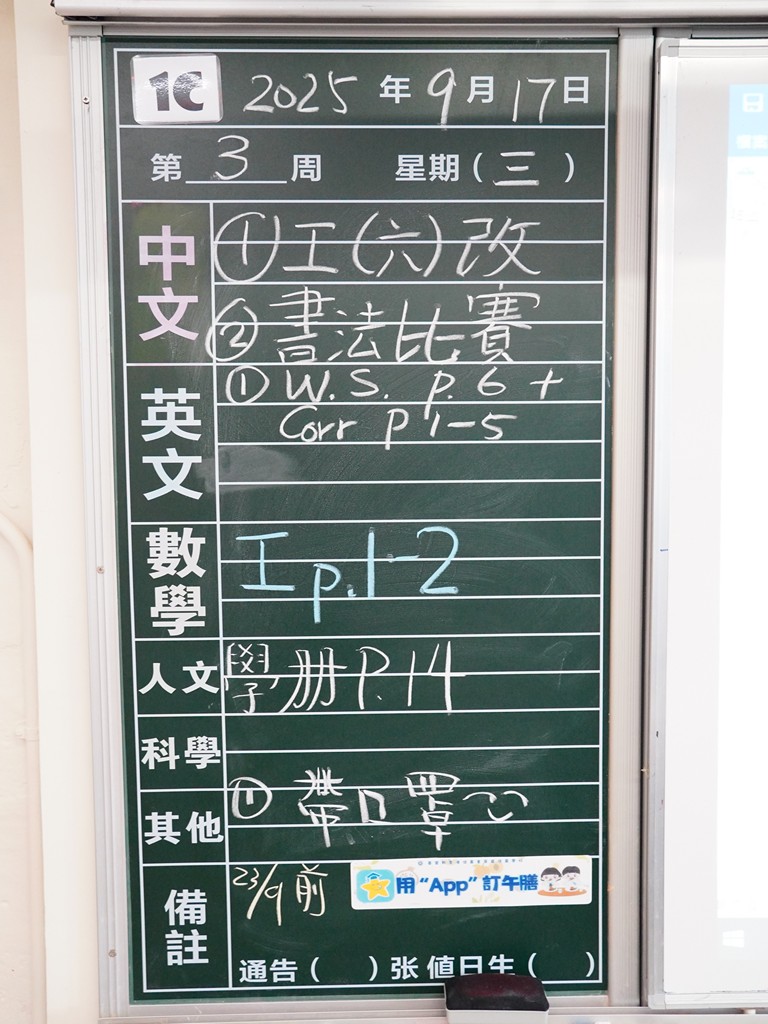 1C 2025年9月17日
第3周 星期(三)
中文 ①工(六)改
②書法比賽
英文 ①W.S. p.6 +
Corr p 1-5
數學 工p.1-2
人文 學册P.14
科學
其他 ①帶口罩
備註 23/9前
用“App”訂午膳
通告( )张 值日生( )